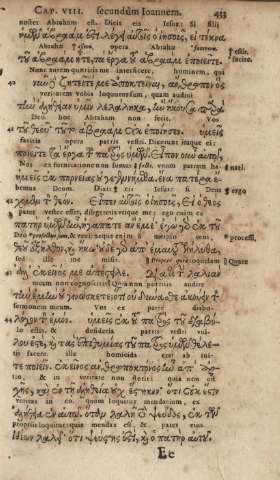 CAP. VIII. secundùm Ioannem. 433
noster Abraham est. Dicit eis Iesus: Si filii
ἡμῶν ἀβραάμ ἐστι. λέγει αὐτοῖς ὁ ἰησοῦς, εἰ τέκνα
Abrahæ opera Abrahæ
τοῦ ἀβραὰμ ἦτε, τὰ ἔργα τοῦ ἀβραὰμ ἐποιεῖτε.
Nunc autem quæritis me interficere, hominem, qui
40 νῦν δὲ ζητεῖτέ με ἀποκτεῖναι, ἄνθρωπον ὃς
veritatem vobis loquutus sum, quam audivi
τὴν ἀλήθειαν ὑμῖν λελάληκα, ἣν ἤκουσα παρὰ
Deo: hoc Abraham non fecit. Vos
41 τοῦ θεοῦ· τοῦτο ἀβραὰμ οὐκ ἐποίησεν. ὑμεῖς
facitis opera patris vestri. Dixerunt itaque ei:
ποιεῖτε τὰ ἔργα τοῦ πατρὸς ὑμῶν. εἶπον οὖν αὐτῷ,
Nos ex fornicatione non sumus unum patrem ha- nati.
ἡμεῖς ἐκ πορνείας οὐ γεγεννήμεθα. ἕνα πατέρα ἔ-
bemus Deum. Dixit eis Iesus: si Deus ergo
42 χομεν τὸν θεόν. εἶπεν αὐτοῖς ὁ ἰησοῦς, εἰ ὁ θεὸς
pater vester esset, diligeretis utique me: ego enim ex
πατὴρ ὑμῶν ἦν, ἠγαπᾶτε ἂν ἐμέ· ἐγὼ γὰρ ἐκ τοῦ
Deo neque enim à meipso veni, processi,
θεοῦ ἐξῆλθον, καὶ ἥκω· οὐδὲ γὰρ ἀπ' ἐμαυτοῦ ἐλήλυθα,
sed ille me misit. Quare loquelam Quare
43 ἀλλ' ἐκεῖνός με ἀπέστειλε. Διατί τὴν λαλιὰν
meam non cognoscitis? Quia non potestis audire
τὴν ἐμὴν οὐ γινώσκετε; ὅτι οὐ δύνασθε ἀκούειν τὸν
sermonem meum. Vos ex patre diabo-
44 λόγον τὸν ἐμόν. ὑμεῖς ἐκ τοῦ πατρὸς τοῦ διαβό-
lo estis, & desideria patris vestri vul-
λου ἐστέ, καὶ τὰς ἐπιθυμίας τοῦ πατρὸς ὑμῶν θέλε-
tis facere. ille homicida erat ab ini-
τε ποιεῖν. ἐκεῖνος ἀνθρωποκτόνος ἦν ἀπ' ἀρ-
tio, & in veritate non stetit: quia non est
χῆς, καὶ ἐν τῇ ἀληθείᾳ οὐχ ἕστηκεν· ὅτι οὐκ ἔστιν
veritas in eo. quum loquitur mendacium, ex
ἀλήθεια ἐν αὐτῷ. ὅταν λαλῇ τὸ ψεῦδος, ἐκ τῶν
propriis loquitur: quia mendax est, & pater eius.
ἰδίων λαλεῖ· ὅτι ψεύστης ἐστί, καὶ ὁ πατὴρ αὐτοῦ.
Ee